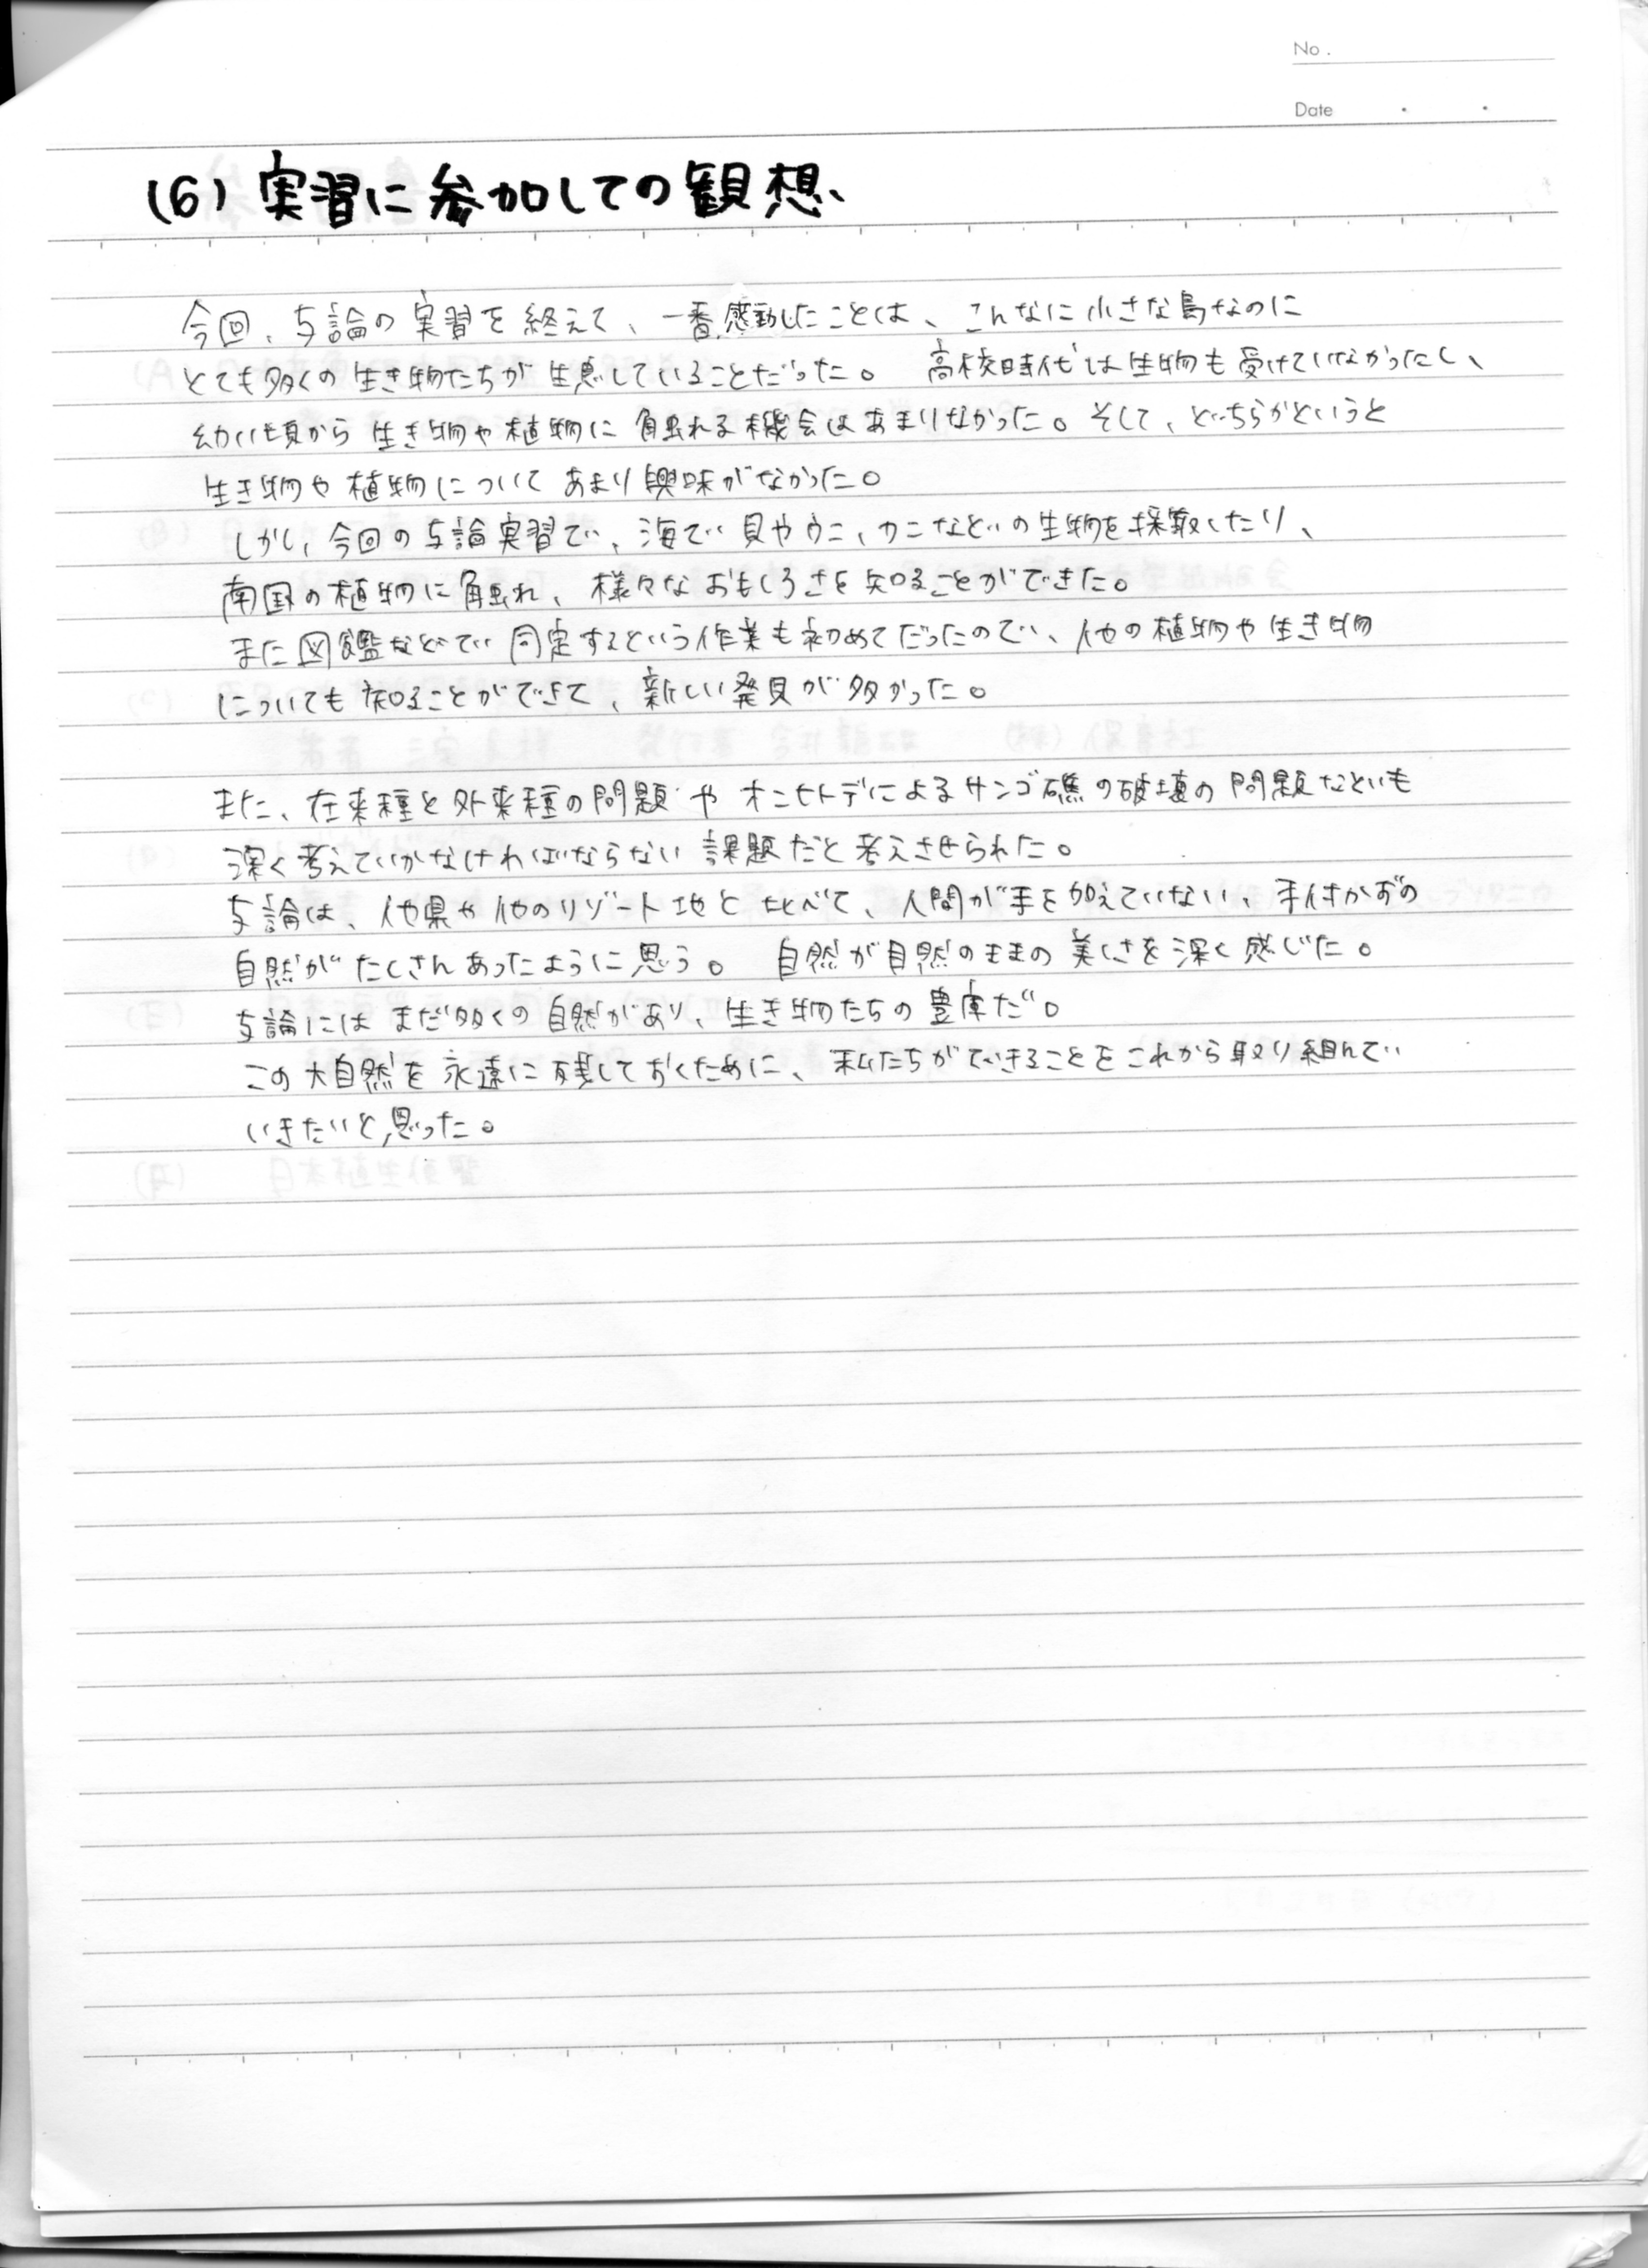 No.
Date
(6) 実習に参加しての観想、
今回、与論の実習を終えて、一番感動したことは、こんなに小さな島なのに
とても多くの生き物たちが生息していることだった。 高校時代は生物も受けていなかったし、
幼い頃から生き物や植物に触れる機会はあまりなかった。そして、どちらかというと
生き物や植物についてあまり興味がなかった。
しかし、今回の与論実習で、海で貝やウニ、カニなどの生物を採取したり、
南国の植物に触れ、様々なおもしろさを知ることができた。
また図鑑などで同定するという作業も初めてだったので、他の植物や生き物
についても知ることができて、新しい発見が多かった。
また、在来種と外来種の問題や オニヒトデによるサンゴ礁の破壊の問題なども
深く考えていかなければならない課題だと考えさせられた。
与論は、他県や他のリゾート地と比べて、人間が手を加えていない、手付かずの
自然がたくさんあったように思う。 自然が自然のままの美しさを深く感じた。
与論にはまだ多くの自然があり、生き物たちの豊庫だ。
この大自然を永遠に残しておくために、私たちができることをこれから取り組んで
いきたいと思った。